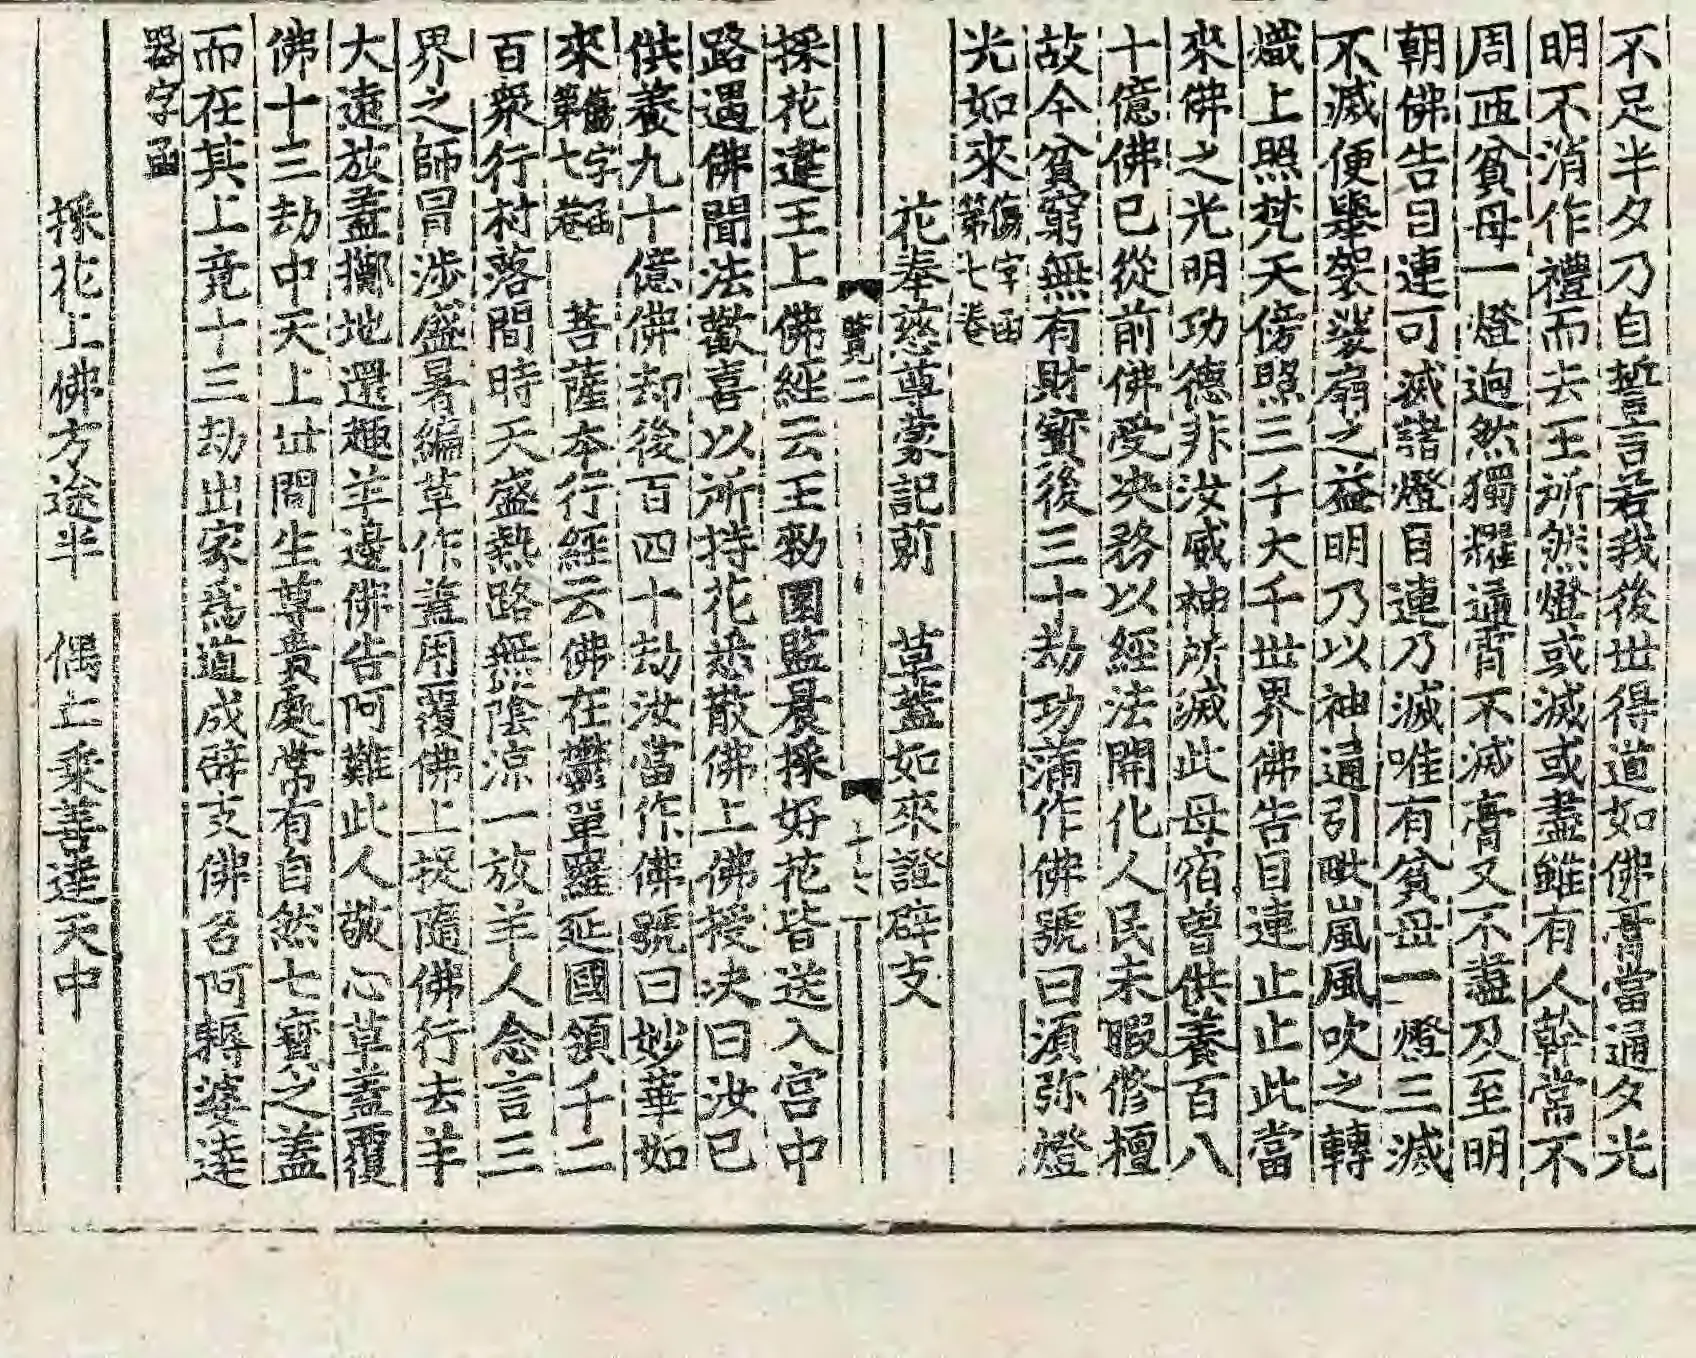 不足半夕乃自誓言若我後世得道如佛膏當通夕光
明不消作禮而去王所然燈或滅或盡雖有人幹常不
周匝貧母一燈逈然獨耀通霄不滅膏又不盡及至明
朝佛告目連可滅諸燈目連乃滅唯有貧母一燈三滅
不滅便舉袈裟扇之益明乃以神通引毗嵐風吹之轉
熾上照梵天傍照三千大千世界佛告目連止止此當
來佛之光明功德非汝威神所滅此母宿曾供養百八
十億佛已從前佛受决務以經法開化人民未暇修檀
故今貧窮無有財寶後三十劫功蒲作佛號曰須弥燈
光如來傷字函第七卷
花奉慈尊蒙記莂　草蓋如來證辟支
覽二
採花違王上佛經云王勑園監晨採好花皆送入宮中
路遇佛聞法歡喜以所持花悉散佛上佛授决曰汝已
供養九十億佛却後百四十劫汝當作佛號曰妙華如
來傷字函第七卷　菩薩本行經云佛在欝單羅延國領千二
百衆行村落間時天盛熱路無陰凉一放羊人念言三
界之師冒涉盛暑編草作蓋用覆佛上捉隨佛行去羊
大遠放蓋擲地還趣羊邊佛告阿難此人敬心草蓋覆
佛十三劫中天上世間生尊貴處常有自然七寶之蓋
而在其上竟十三劫出家爲道成辟支佛名阿耨婆達
器字函
採花上佛方途半　偶上乘善達天中